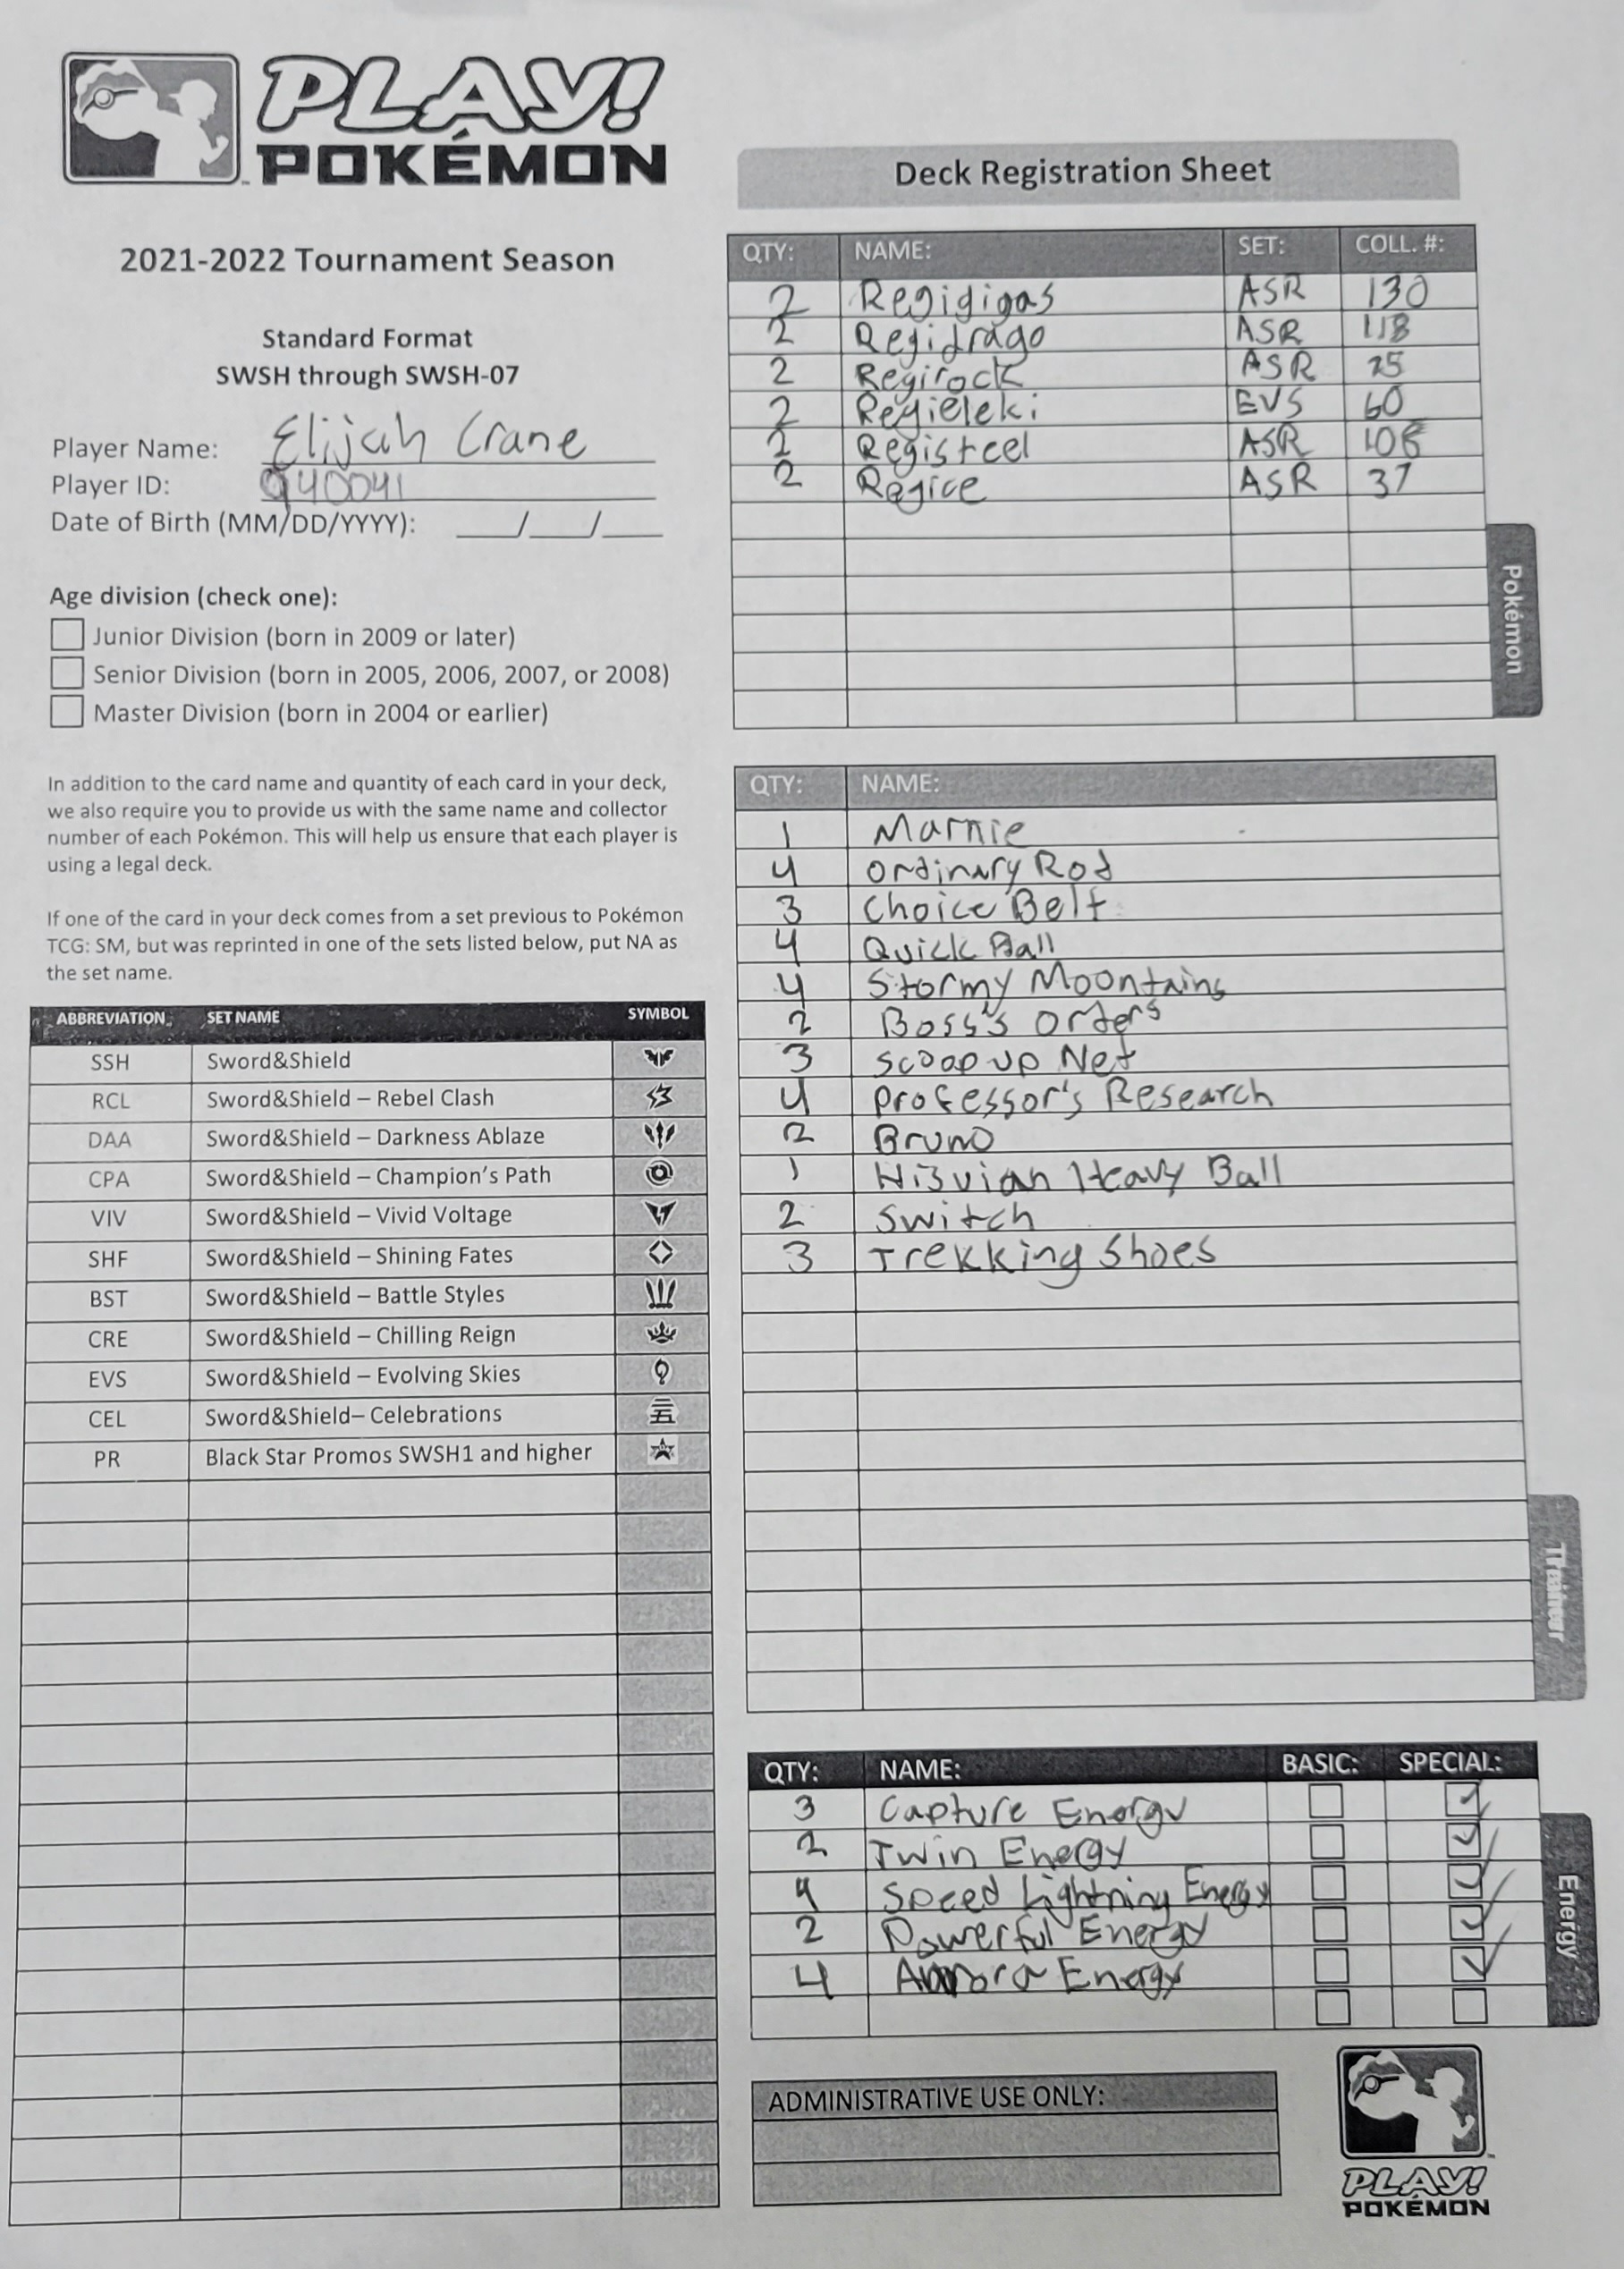 PLAY!
POKÉMON
2021-2022 Tournament Season
Standard Format
SWSH through SWSH-07
Player Name: Elijah Crane
Player ID: 940041
Date of Birth (MM/DD/YYYY): ___/___/___
Age division (check one):
Junior Division (born in 2009 or later)
Senior Division (born in 2005, 2006, 2007, or 2008)
Master Division (born in 2004 or earlier)
In addition to the card name and quantity of each card in your deck,
we also require you to provide us with the same name and collector
number of each Pokémon. This will help us ensure that each player is
using a legal deck.
If one of the card in your deck comes from a set previous to Pokémon
TCG: SM, but was reprinted in one of the sets listed below, put NA as
the set name.
ABBREVIATION SET NAME SYMBOL
SSH Sword&Shield
RCL Sword&Shield – Rebel Clash
DAA Sword&Shield – Darkness Ablaze
CPA Sword&Shield – Champion's Path
VIV Sword&Shield – Vivid Voltage
SHF Sword&Shield – Shining Fates
BST Sword&Shield – Battle Styles
CRE Sword&Shield – Chilling Reign
EVS Sword&Shield – Evolving Skies
CEL Sword&Shield– Celebrations
PR Black Star Promos SWSH1 and higher
Deck Registration Sheet
QTY: NAME: SET: COLL. #:
2 Regigigas ASR 130
2 Regidrago ASR 118
2 Regirock ASR 75
2 Regieleki EVS 60
2 Registeel ASR 108
2 Regice ASR 37
Pokémon
QTY: NAME:
1 Marnie
4 Ordinary Rod
3 Choice Belt
4 Quick Ball
4 Stormy Moontains
2 Boss's Orders
3 Scoop up Net
4 Professor's Research
2 Bruno
1 Hisuian Heavy Ball
2 Switch
3 Trekking Shoes
Trainer
QTY: NAME: BASIC: SPECIAL:
3 Capture Energy
2 Twin Energy
4 Speed Lightning Energy
2 Powerful Energy
4 Aurora Energy
Energy
ADMINISTRATIVE USE ONLY:
PLAY!
POKÉMON